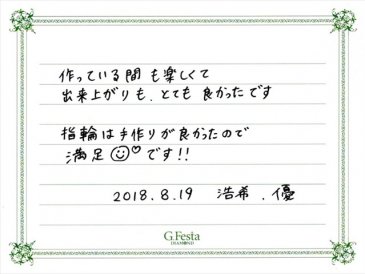 作っている間も楽しくて
出来上がりも、とても良かったです
指輪は手作りが良かったので
満足です!!
2018.8.19 浩希、優
G.Festa
DIAMOND